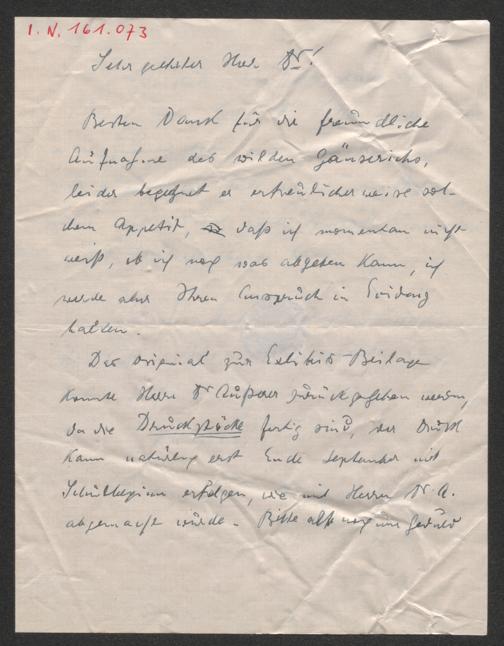 I. N. 161.073
Sehr geehrter Herr Dr!
Besten Dank für die freundliche
Aufnahme des wilden Gänserichs,
leider begegnet er erfreulicherweise sol-
chem Appetit, daß ich momentan nicht
weiß, ob ich noch was abgeben kann, ich
werde aber Ihren Anspruch in Evidenz
halten.
Das Original zur Exlibris-Beilage
konnte Herrn Dr zurückgegeben werden,
da die Druckstöcke fertig sind, der Druck
kann natürlich erst Ende September mit
Schulbeginn erfolgen, wie mit Herrn Dr A.
abgemacht wurde. Bitte also noch um Geduld